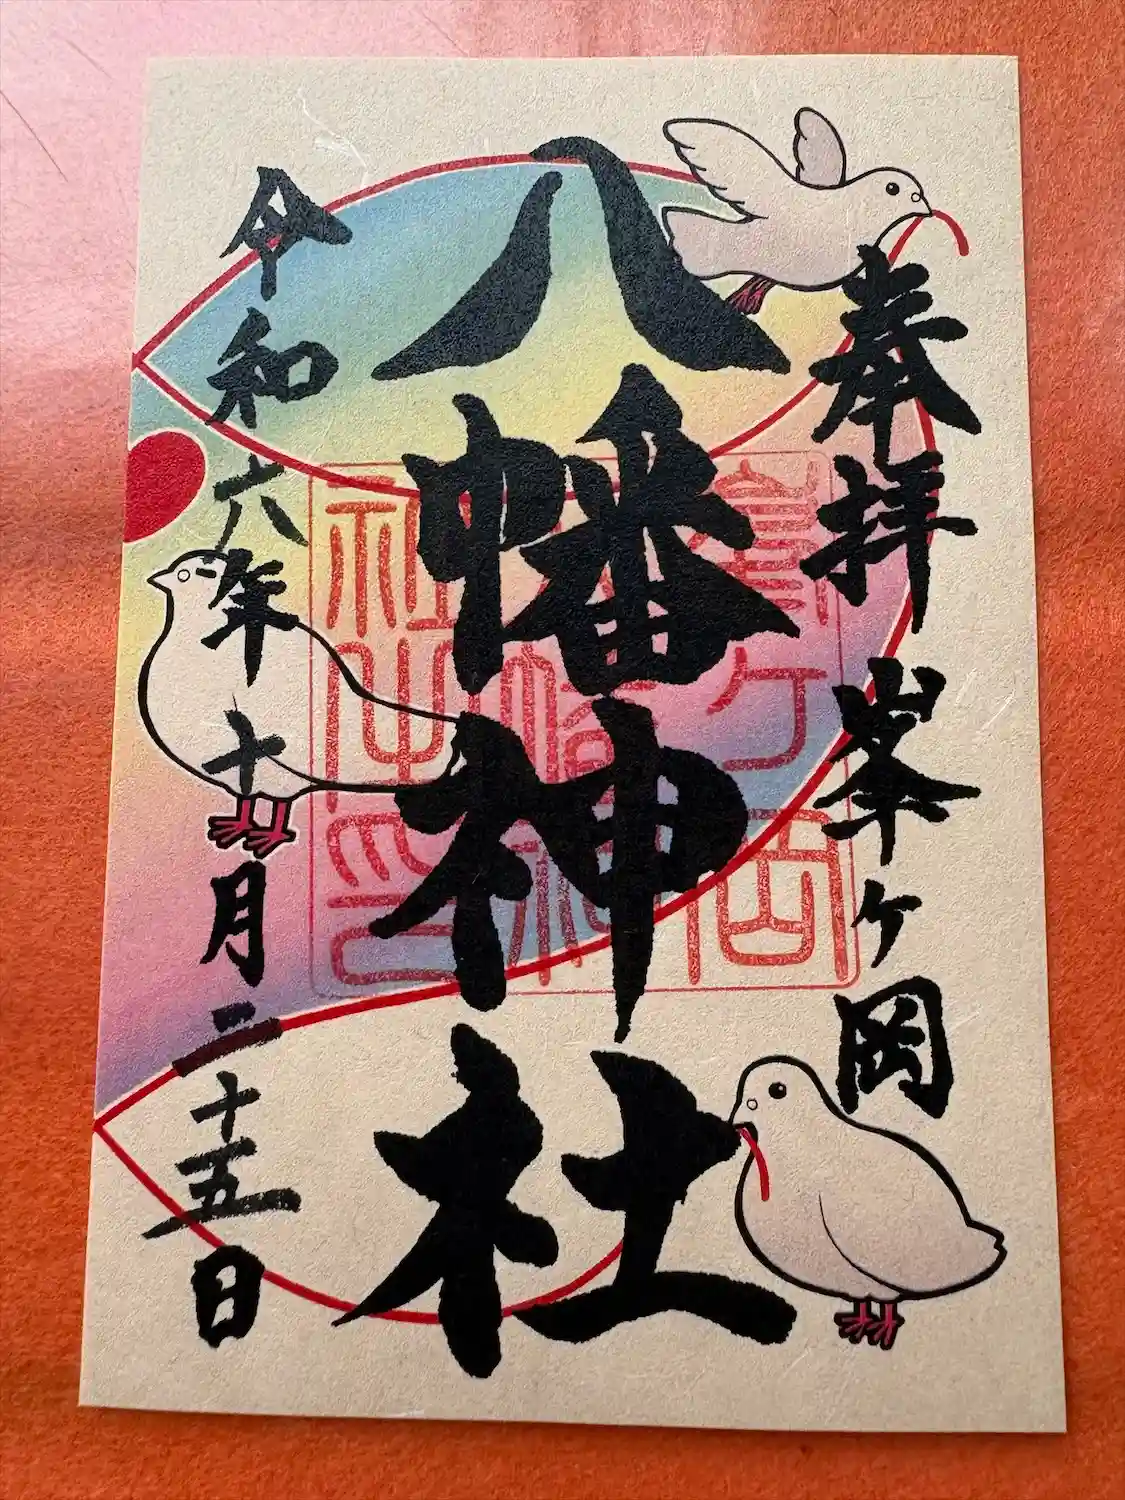 奉拝 峯ヶ岡
八幡神社
峯ヶ岡
八幡神
社之印
令和六年十月二十五日